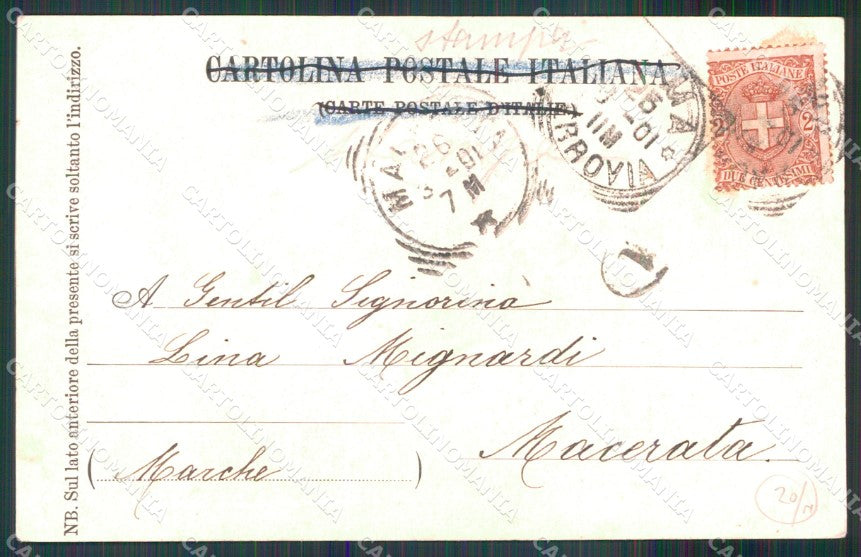 stampe
CARTOLINA POSTALE ITALIANA
(CARTE POSTALE D'ITALIE)
POSTE ITALIANE
2
DUE CENTESIMI
FERROVIA
25
01
11 M
26
01
7 M
1
A Gentil Signorina
Lina Mignardi
Macerata
(Marche)
NB. Sul lato anteriore della presente si scrive soltanto l'indirizzo.
20/N
CARTOLINOMANIA